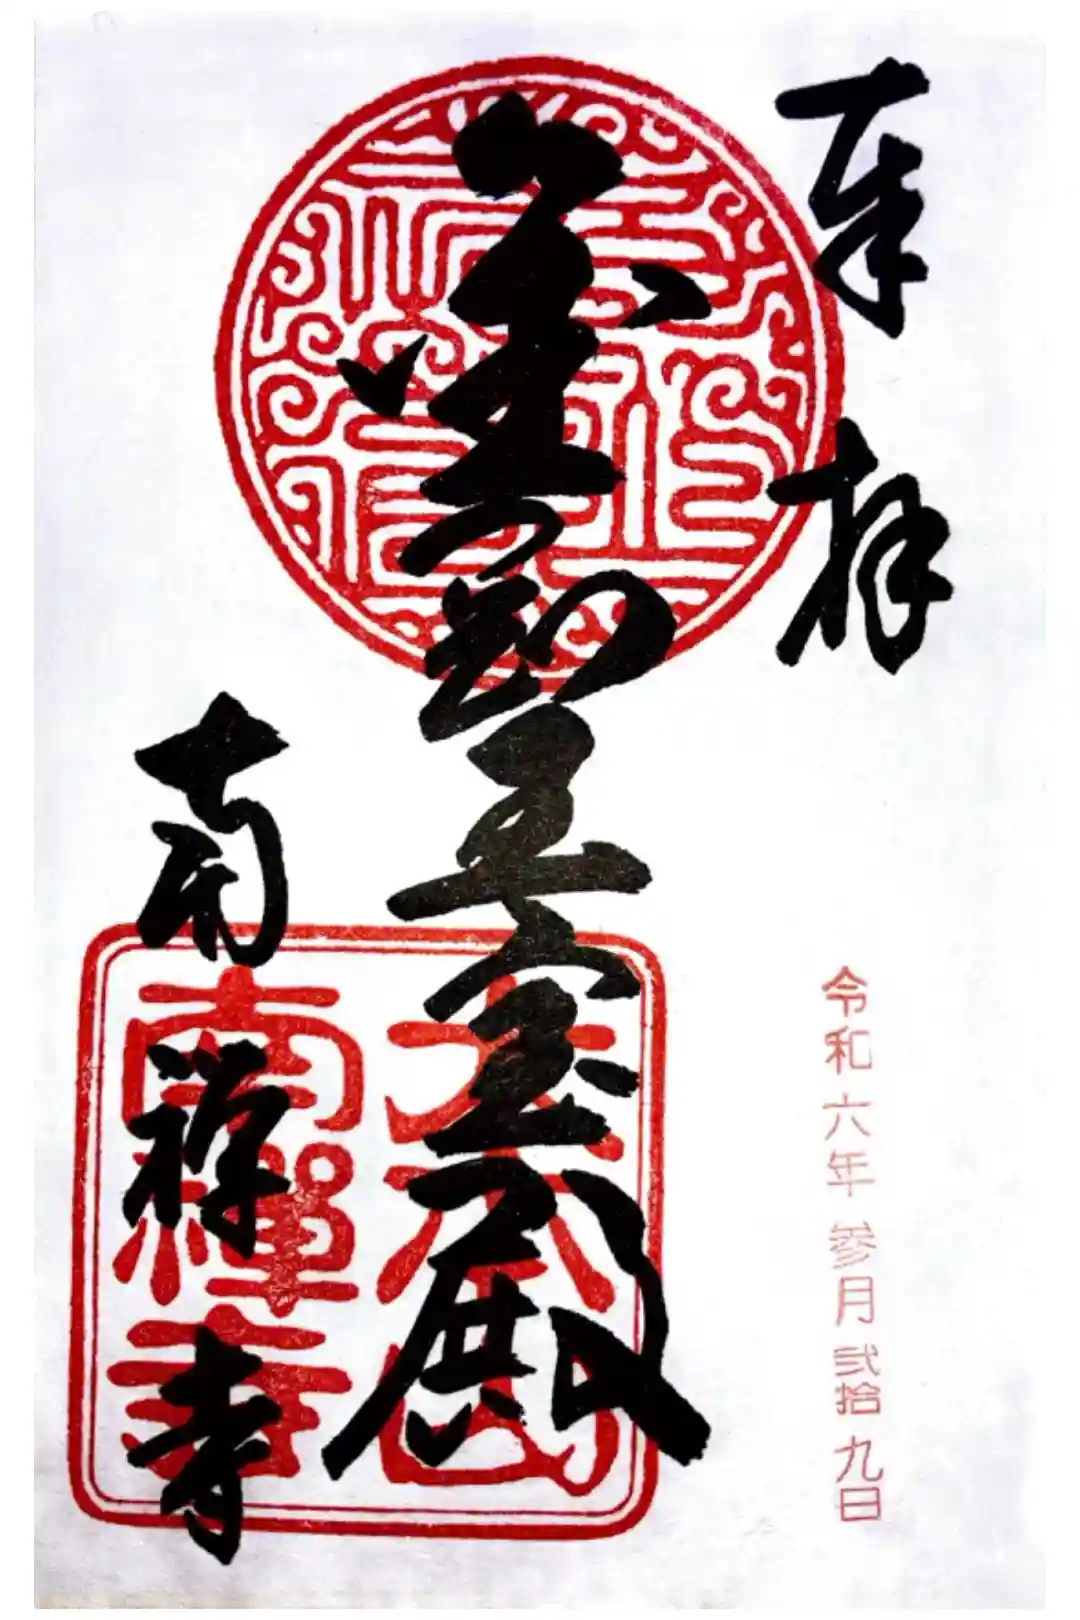 奉拝
令和六年参月弐拾九日
金剛王宝殿
大本山
南禅寺
南禪寺